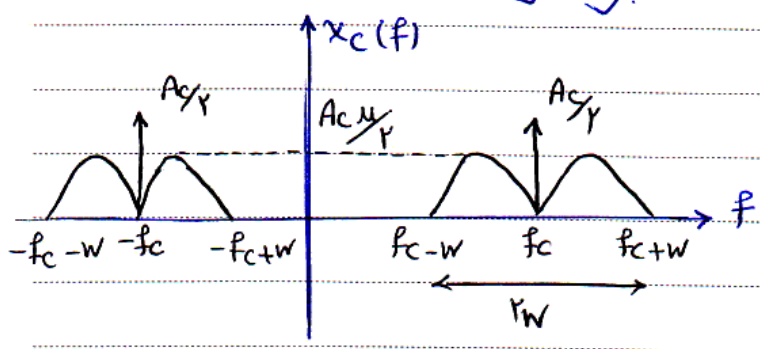 Xc(f)
Ac/۲
Acμ/۲
Ac/۲
f
-fc-W -fc -fc+W fc-W fc fc+W
۲W